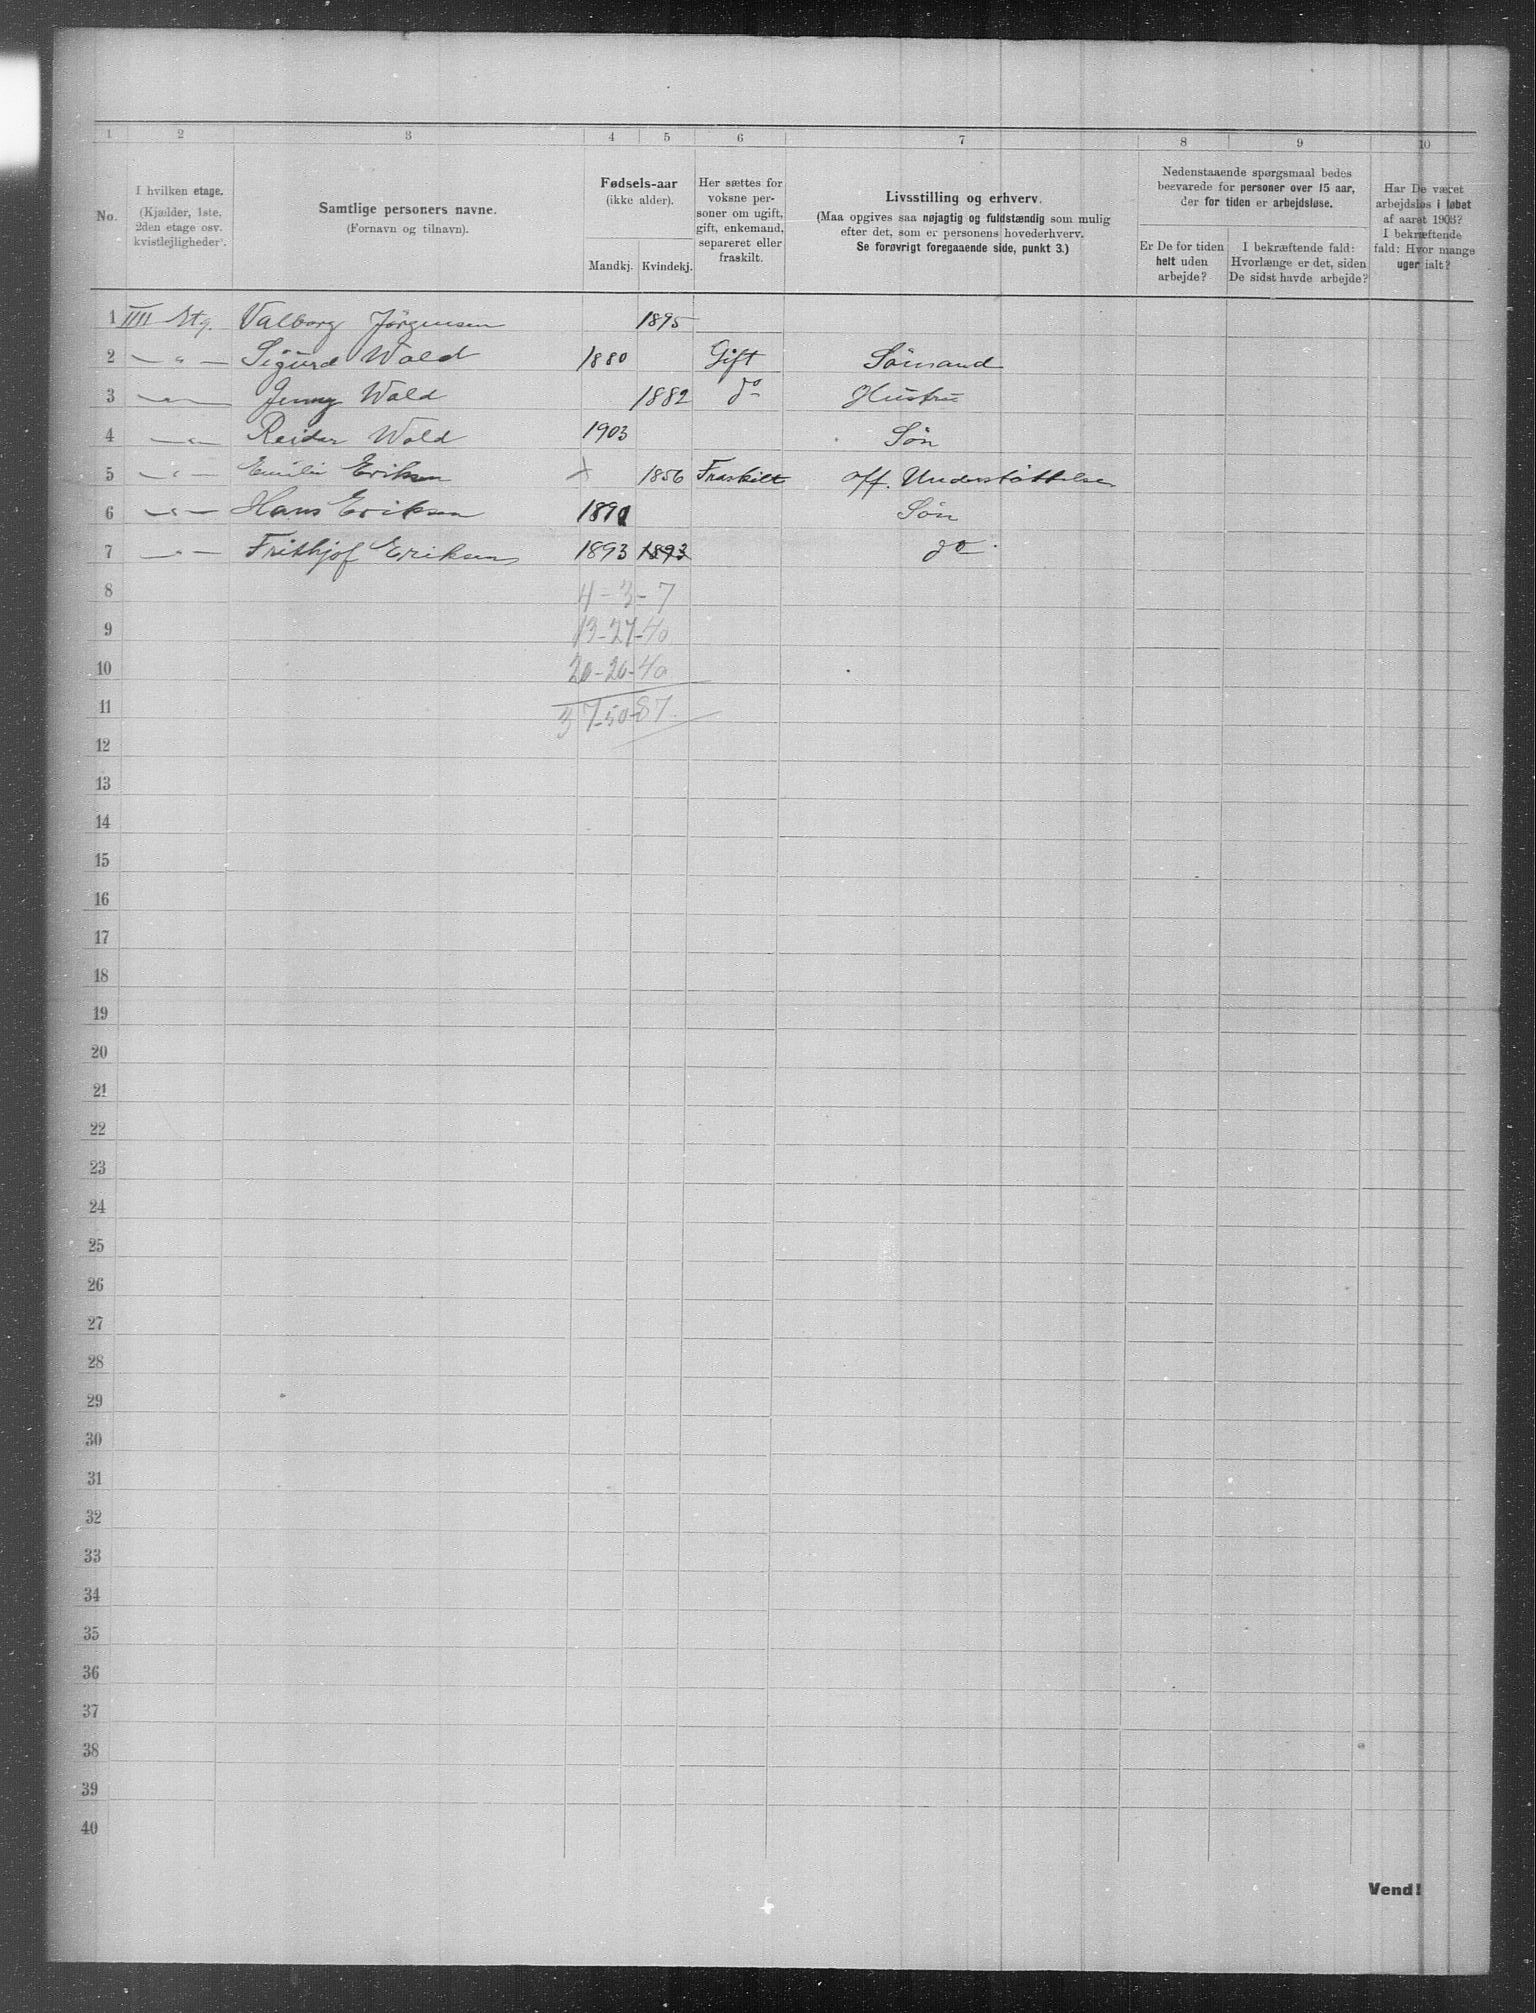 1 2 3 4 5 6 7 8 9 10
No.
I hvilken etage.
(Kjælder, 1ste,
2den etage osv.
kvistlejligheder).
Samtlige personers navne.
(Fornavn og tilnavn).
Fødsels-aar
(ikke alder).
Mandkj. Kvindekj.
Her sættes for
voksne per-
soner om ugift,
gift, enkemand,
separeret eller
fraskilt.
Livsstilling og erhverv.
(Maa opgives saa nøjagtig og fuldstændig som mulig
efter det, som er personens hovederhverv.
Se forøvrigt foregaaende side, punkt 3.)
Nedenstaaende spørgsmaal bedes
besvarede for personer over 15 aar,
der for tiden er arbejdsløse.
Er De for tiden
helt uden
arbejde?
I bekræftende fald:
Hvorlænge er det, siden
De sidst havde arbejde?
Har De været
arbejdsløs i løbet
af aaret 1903?
I bekræftende
fald: Hvor mange
uger ialt?
1 IIII Etg. Valborg Jörgensen 1895
2 — " — Sigurd Wold 1880 Gift Sömand
3 — " — Jenny Wold 1882 do Hustru
4 — " — Reidar Wold 1903 Sön
5 — " — Emilie Eriksen 1856 Fraskilt off. Understöttelse
6 — " — Hans Eriksen 1890 Sön
7 — " — Frithjof Eriksen 1893 1893 do
8 4-3-7
9 13-27-40
10 20-20-40
11 37-50-87.
12
13
14
15
16
17
18
19
20
21
22
23
24
25
26
27
28
29
30
31
32
33
34
35
36
37
38
39
40
Vend!